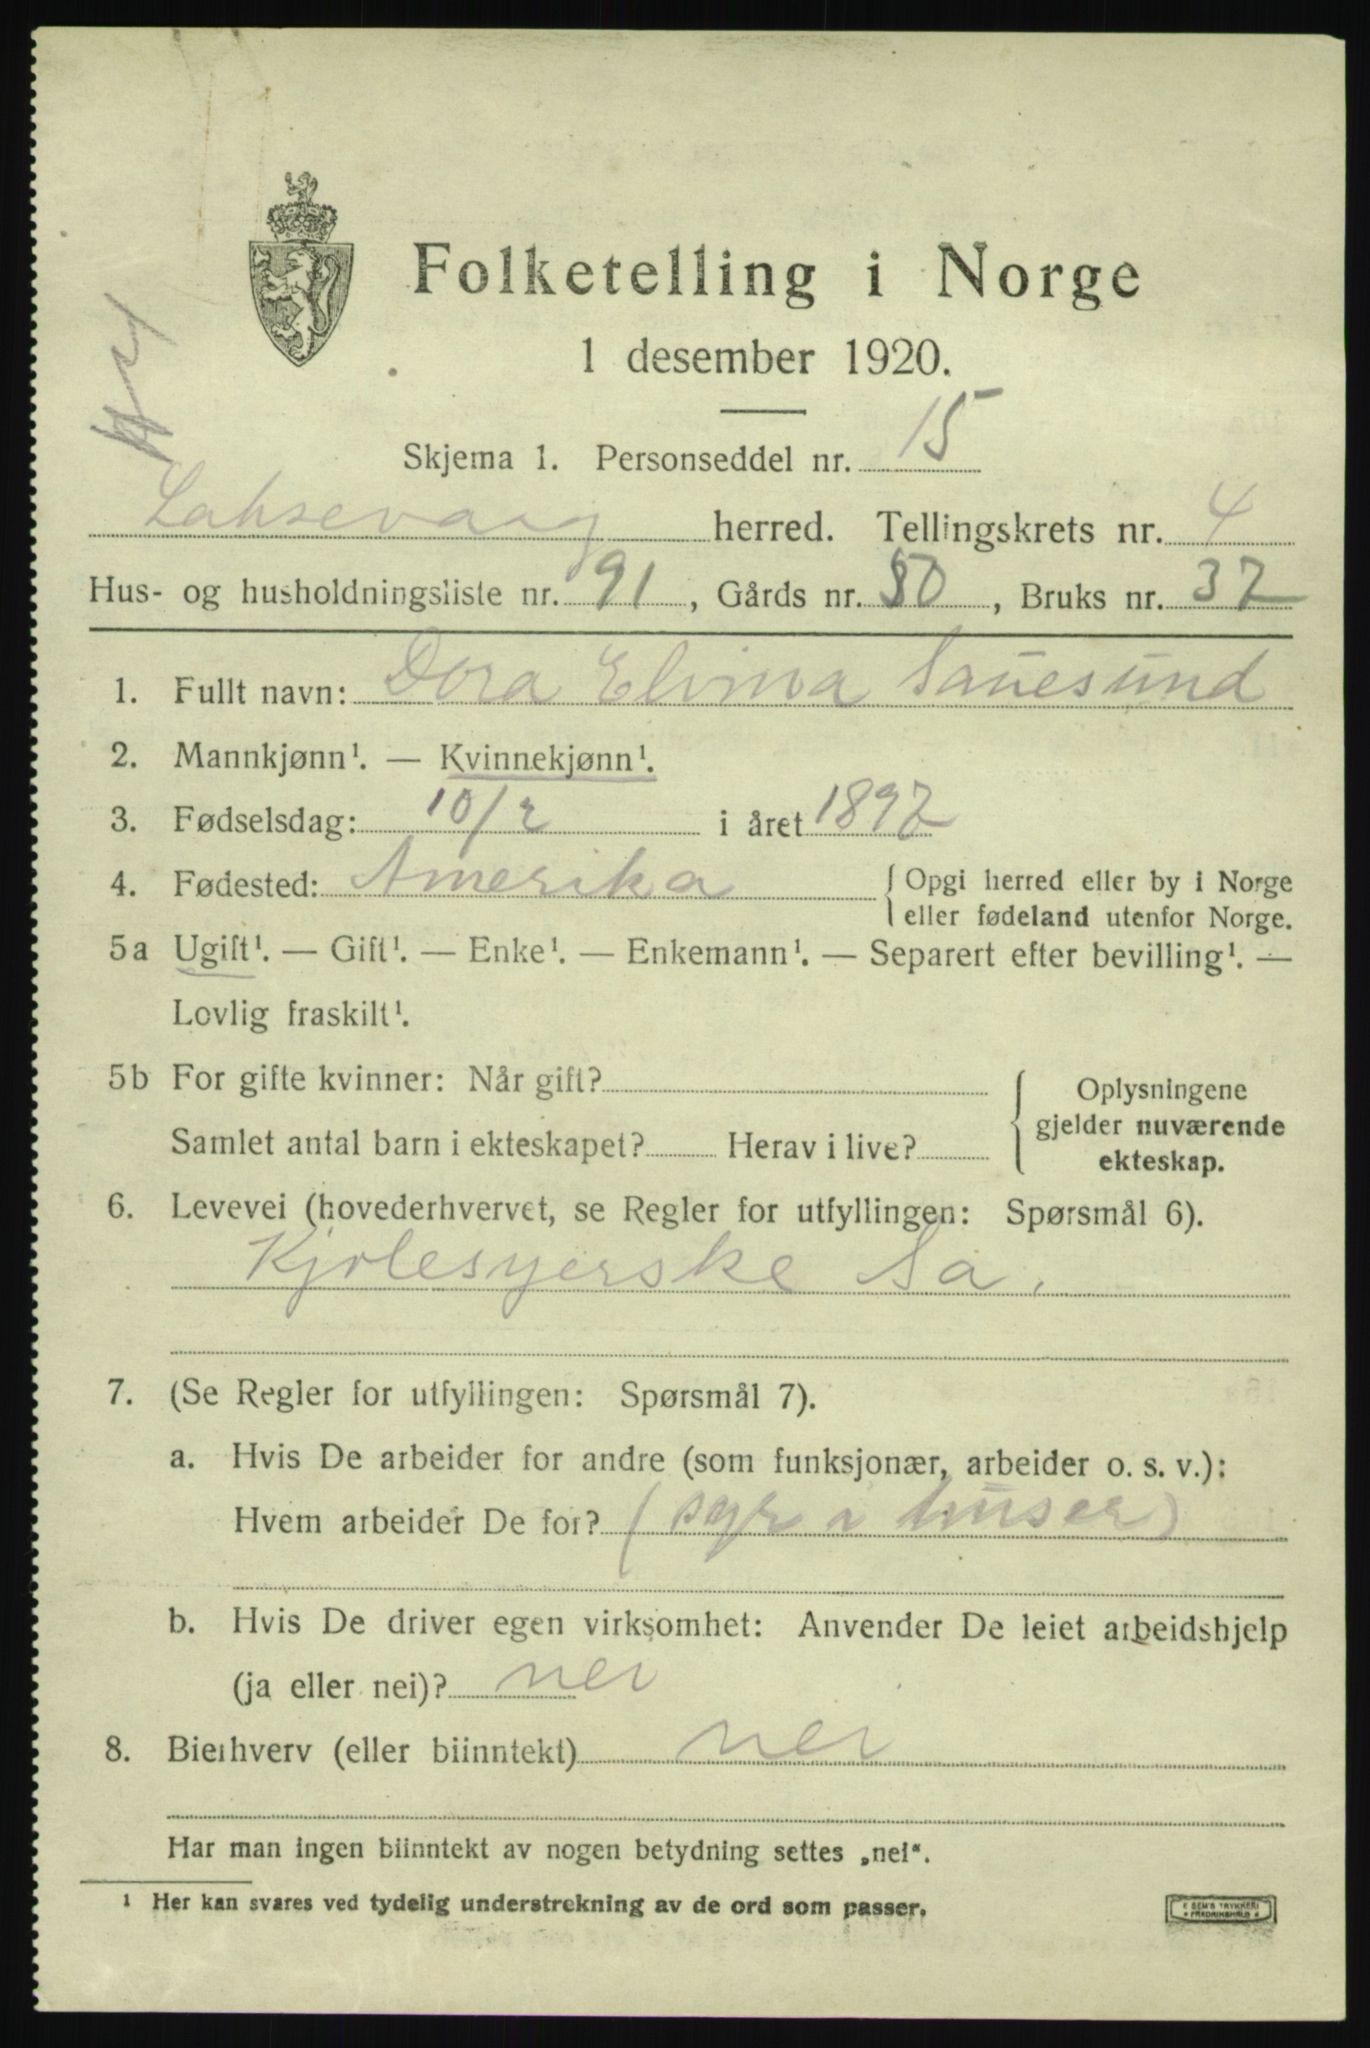 Folketelling i Norge
1 desember 1920.
Skjema 1. Personseddel nr. 15
Laksevaag herred. Tellingskrets nr. 4
Hus- og husholdningsliste nr. 91, Gårds nr. 50, Bruks nr. 37
1. Fullt navn: Dora Elvina Sauesund
2. Mannkjønn¹. — Kvinnekjønn¹.
3. Fødselsdag: 10/2 i året 1897
4. Fødested: Amerika { Opgi herred eller by i Norge
eller fødeland utenfor Norge.
5a Ugift¹. — Gift¹. — Enke¹. — Enkemann¹. — Separert efter bevilling¹. —
Lovlig fraskilt¹.
5b For gifte kvinner: Når gift?
Samlet antal barn i ekteskapet? Herav i live?
{ Oplysningene
gjelder nuværende
ekteskap.
6. Levevei (hovederhvervet, se Regler for utfyllingen: Spørsmål 6).
Kjolesyerske Sa.
7. (Se Regler for utfyllingen: Spørsmål 7).
a. Hvis De arbeider for andre (som funksjonær, arbeider o. s. v.):
Hvem arbeider De for? (syr i huser)
b. Hvis De driver egen virksomhet: Anvender De leiet arbeidshjelp
(ja eller nei)? nei
8. Bierhverv (eller biinntekt) nei
Har man ingen biinntekt av nogen betydning settes „nei“.
¹ Her kan svares ved tydelig understrekning av de ord som passer.
E SEM'S TRYKKERI
FREDRIKSHALD